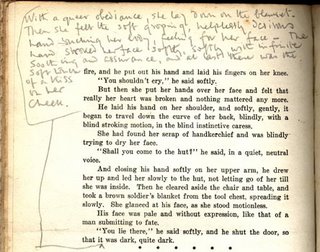 With a queer obedience, she lay down on the blanket.
Then she felt the soft, groping, helplessly desirous
hand touching her body, feeling for her face. The
hand stroked her face softly, softly, with infinite
soothing and assurance, and at last there was the
soft touch
of a kiss
on her
cheek.
fire, and he put out his hand and laid his fingers on her knee.
"You shouldn't cry," he said softly.
But then she put her hands over her face and felt that
really her heart was broken and nothing mattered any more.
He laid his hand on her shoulder, and softly, gently, it
began to travel down the curve of her back, blindly, with a
blind stroking motion, in the blind instinctive caress.
She had found her scrap of handkerchief and was blindly
trying to dry her face.
"Shall you come to the hut?" he said, in a quiet, neutral
voice.
And closing his hand softly on her upper arm, he drew
her up and led her slowly to the hut, not letting go of her till
she was inside. Then he cleared aside the chair and table, and
took a brown soldier's blanket from the tool chest, spreading it
slowly. She glanced at his face, as she stood motionless.
His face was pale and without expression, like that of a
man submitting to fate.
"You lie there," he said softly, and he shut the door, so
that it was dark, quite dark.